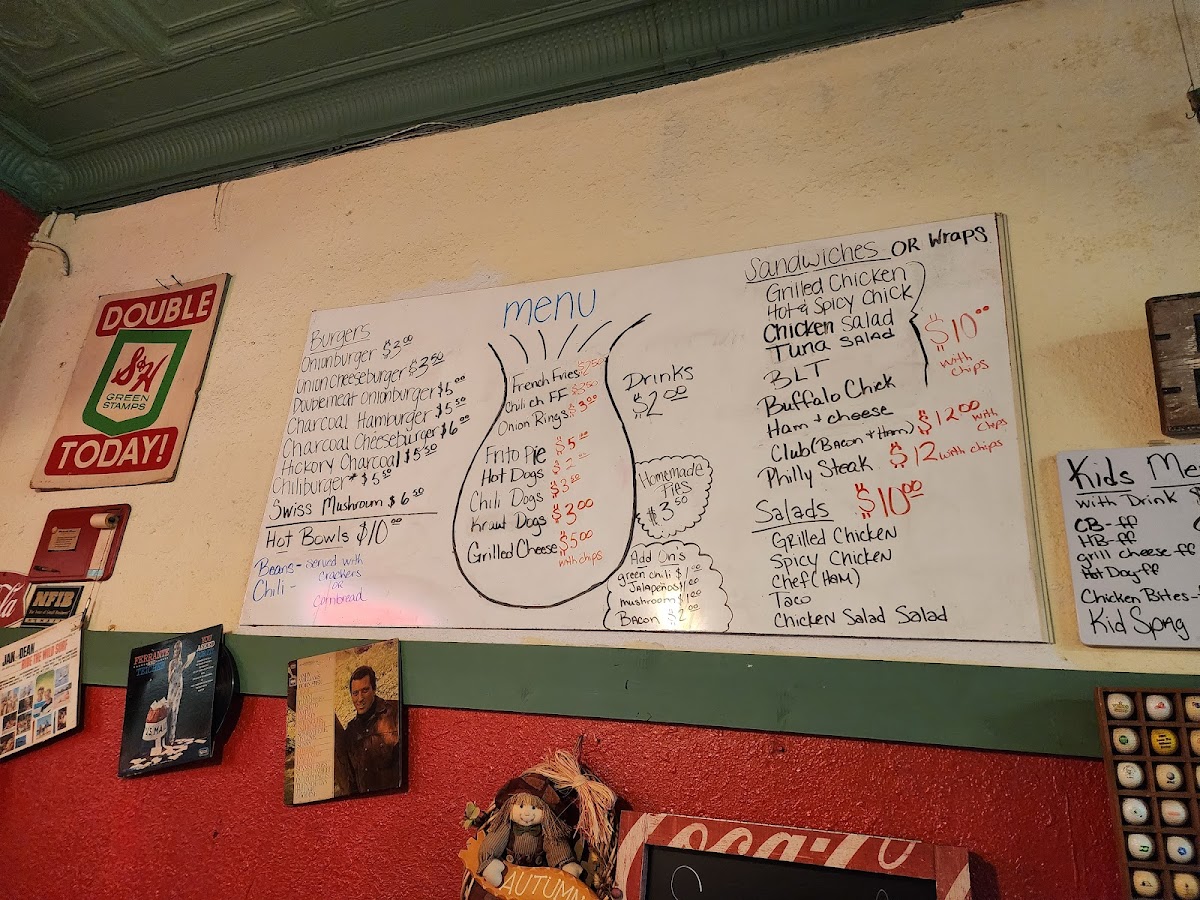 DOUBLE
S&H
GREEN
STAMPS
TODAY!
NFIB
JAN & DEAN
RIDE THE WILD SURF
FERRANTE
TEICHER
YOU ASKED
menu
Burgers
Onionburger $3.00
Onioncheeseburger $3.50
Doublemeat Onionburger $5.00
Charcoal Hamburger $5.50
Charcoal Cheeseburger $6.00
Hickory Charcoal $5.50
Chiliburger* $5.50
Swiss Mushroom $6.50
Hot Bowls $10.00
Beans - served with
crackers
or
Cornbread
Chili -
French Fries $2.50
Chili ch FF $3.50
Onion Rings $3.00
Frito Pie $5.00
Hot Dogs
Chili Dogs $3.50
Kraut Dogs $3.00
Grilled Cheese $5.00
with chips
Drinks
$2.00
Homemade
Pies
$3.50
Add On's
green chili $1.00
Jalapeños
mushroom $1
Bacon $2.00
Sandwiches OR Wraps
Grilled Chicken
Hot & Spicy Chick
Chicken Salad
Tuna Salad
BLT
Buffalo Chick
Ham + cheese
$10.00
with
chips
Club (Bacon + Ham) $12.00 with chips
Philly Steak $12 with chips
Salads $10.00
Grilled Chicken
Spicy Chicken
Chef (Ham)
Taco
Chicken Salad Salad
Kids Me
with Drink
CB-ff
HB-ff
grill cheese-ff
Hot Dog-ff
Chicken Bites-
Kid Spag
AUTUMN
Coca-Co